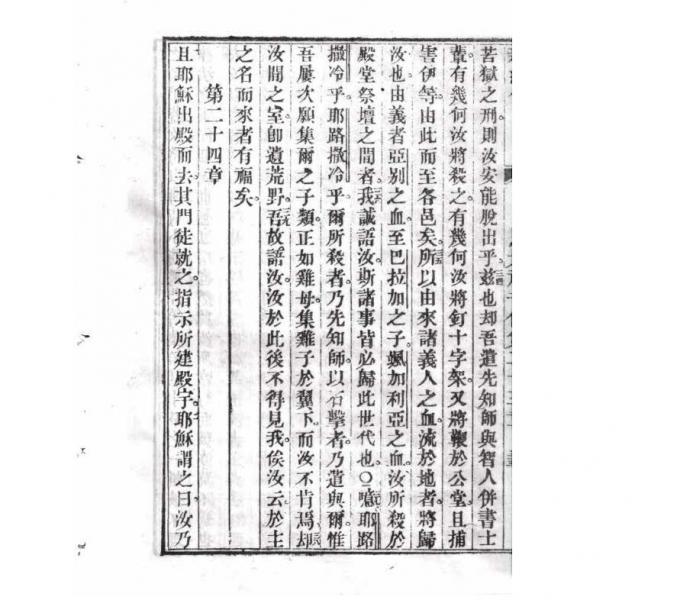 苦獄之刑則汝安能脫出乎。茲也却吾遣先知師與智人併書士
輩有幾何汝將殺之。有幾何汝將釘十字架。又將鞭於公堂且捕
害伊等。由此而至各邑矣。所以由來諸義人之血流於地者。將歸
汝也。由義者亞別之血。至巴拉加之子。颯加利亞之血。汝所殺於
殿堂祭壇之間者。我誠語汝。斯諸事皆必歸此世代也。○噫耶路
撒冷乎。耶路撒冷乎。爾所殺者。乃先知師。以石擊者。乃遣與爾。惟
吾屢次願集爾之子類。正如雞母集雞子於翼下。而汝不肯焉。却
汝閒之室。卽遺荒野。吾故語汝。汝於此後不得見我。俟汝云。於主
之名而來者有福矣。
第二十四章
且耶穌出殿而去。其門徒就之。指示所建殿宇。耶穌謂之曰。汝乃